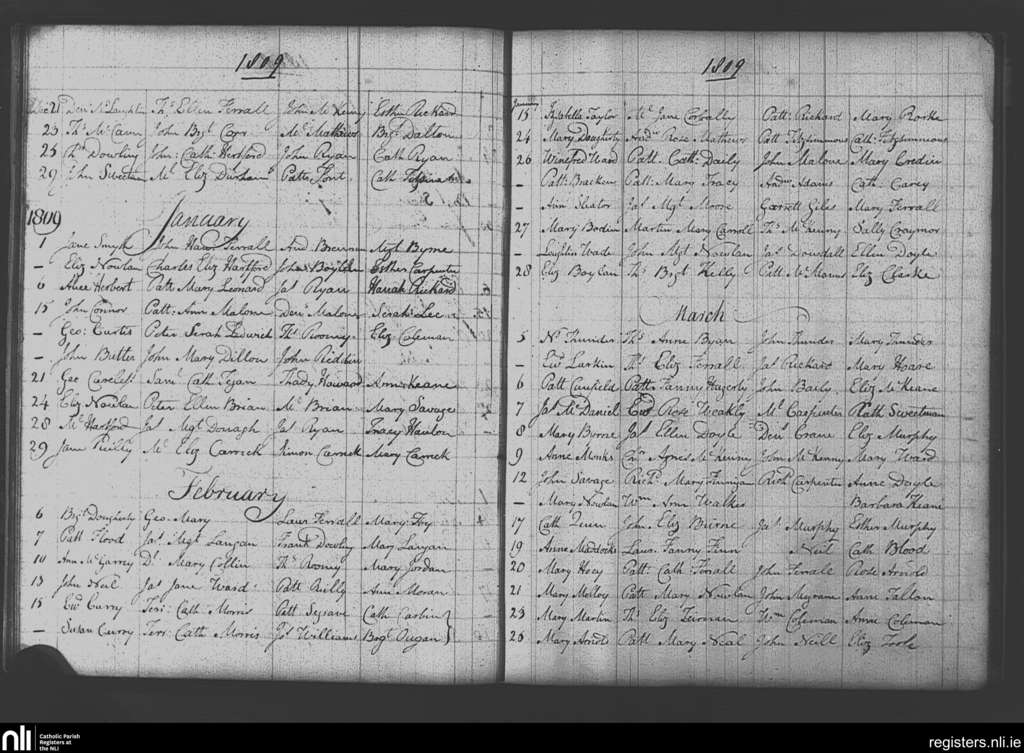 1809
Dec 21 Den: McLaughlin Ths Ellen Ferrall John McKenny Esther Rickard
23 Ths McCann John Bgt Capr Ml Mathews Bgt Dalton
25 Ths Dowling John: Cath: Hertford John Ryan Cath Ryan
29 John Sweetan Ml Eliz Durham Patt Cath
1809
January
1 Jane Smyth John Ferrall And Brennan Mgt Byrne
– Eliz Nowlan Charles Eliz Hartford John Boylan Esther Carpenter
6 Alice Herbert Patt Mary Leonard Jas Ryan Hanah Rickard
15 John Connor Patt: Ann Malone Den: Malone Serah Lee
– Geo: Curtis Peter Serah Ledwich Ths Rooney Eliz Coleman
– John Butter John Mary Dillon John
21 Geo Saml Cath Fegan Thady Howard Ann Keane
24 Eliz Nowlan Peter Ellen Brian Ml Brian Mary Savage
28 Ml Hartford Jas Mgt Donagh Jas Ryan Tracy Hanlon
29 Jane Reilly Ml Eliz Carrick Simon Carrick Mary Carrick
February
6 Bgt Dougherty Geo Mary Laur Ferrall Mary Foy
7 Patt Flood Jas Mgt Langan Frank Dowling Mary Langan
10 Ann McGarrey Dl Mary Ths Rooney Mary Jordan
13 John Neil Jas Jane Ward Patt Reilly Ann Moran
15 Ewd Curry Ters: Cath Morris Patt Cath
– Susan Curry Ters: Cath Morris Jos Williams Bgt
1809
January
15 Isabella Taylor Ml Jane Corbally Patt: Rickard Mary Rorke
24 Mary Dougherty Andw Rose Mathews Patt Fitzsimmons Cath: Fitzsimmons
26 Winefred Ward Patt Cath: Daily John Malone Mary
– Patt: Bracken Patt: Mary Tracey Andw Adams Cath Carey
– Ann Slator Jas Mgt Moore Garrett Giles Mary Ferrall
27 Mary Martin Mary Carroll Ths Sally Craymor
– Laughlin Wade John Mgt Nowlan Jas Dowdall Ellen Doyle
28 Eliz Boylan Ths Bgt Kelly Patt McManus Eliz Clarke
March
5 Ns Thunder Ths Anne Ryan John Thunder Mary Thunder
– Ewd Larkin Ths Eliz Ferrall Jas Rickard Mary Hoare
6 Patt Caulfield Patt Fanny Hagerty John Baily Eliz McKeane
7 Jas McDaniel Ewd Rose Weakly Ml Carpenter Cath Sweetman
8 Mary Byrne Jas Ellen Doyle Den: Crane Eliz Murphy
9 Anne Monks Agnes McKenny John McKenny Mary Ward
12 John Savage Richd Mary Finnigan Rich Carpenter Anne Doyle
– Mary Nowlan Wm Ann Walker Barbara Keane
17 Cath Quin John Eliz Byrne Jas Murphy Esther Murphy
19 Anne Maddocks Laur. Fanny Finn Neil Cath Blood
20 Mary Hoey Patt: Cath Ferrall John Ferrall Rose Arnold
21 Mary Molloy Patt Mary Nowlan John Anne Fallon
23 Mary Martin Ths Eliz Wm Coleman Anne Coleman
26 Mary Patt Mary Neal John Neill Eliz Toole
nli Catholic Parish Registers at the NLI
registers.nli.ie